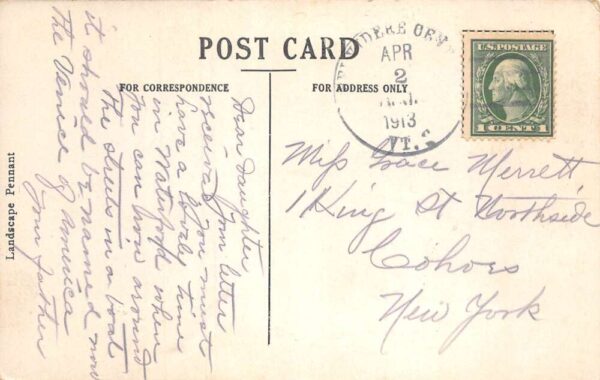 POST CARD
FOR CORRESPONDENCE
FOR ADDRESS ONLY
Landscape Pennant
Dear daughter
received your letter
you must
have a lovely time
in Waterford when
you can row around
the streets in a boat
it should be named now
the Venice of America
your father
APR
2
1913
VT.
U.S. POSTAGE
1 CENT 1
Miss Grace Merrett
1 King St Northside
Cohoes
New York